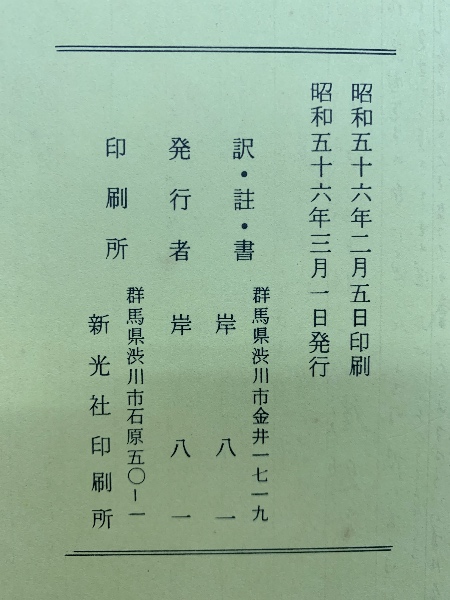 昭和五十六年二月五日印刷
昭和五十六年三月一日発行
群馬県渋川市金井一七一九
訳・註・書 岸八一
発行者 岸八一
群馬県渋川市石原五〇ー一
印刷所 新光社印刷所